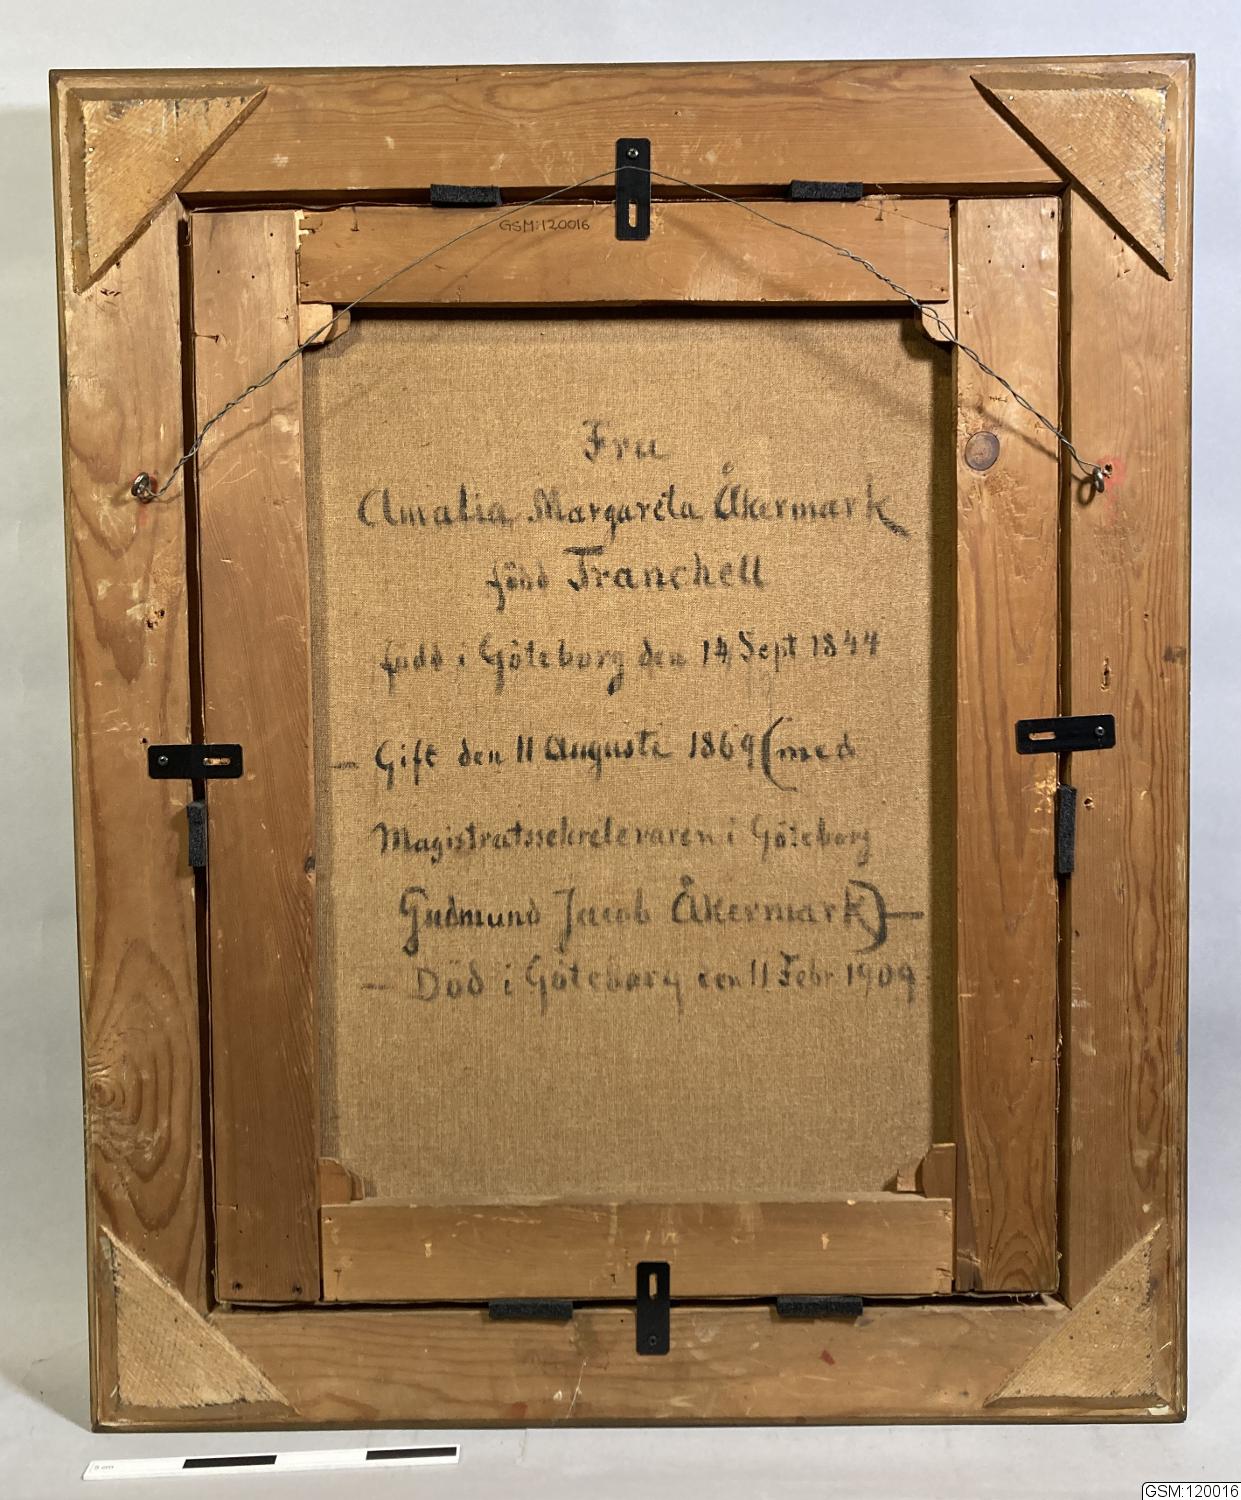 GSM:120016
Fru
Amalia Margareta Åkermark
född Tranchell
född i Göteborg den 14 Sept 1844
— Gift den 11 Augusti 1869 (med
Magistratssekreteraren i Göteborg
Gudmund Jacob Åkermark) —
— Död i Göteborg den 11 Febr 1909
5 cm
GSM:120016